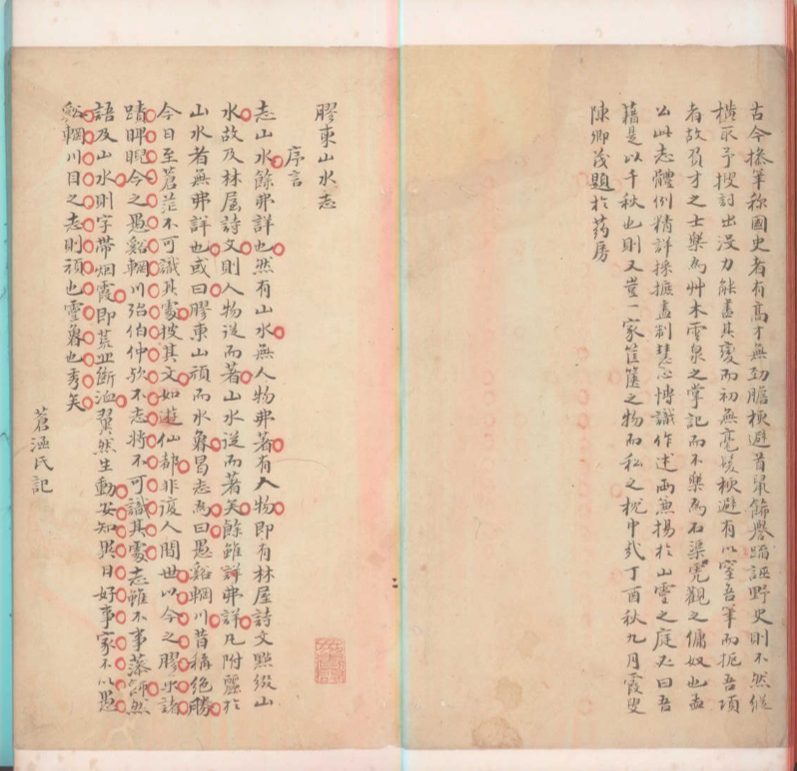 古今操筆稱國史者有高才無勁膽梗避首鼠飾譽蹈誣野史則不然縱
橫取予搜討出沒力能盡其變而初無毫髮梗避有以窒吾筆而扼吾項
者故負才之士樂為艸木雲泉之掌記而不樂為石渠虎觀之傭奴也孟
公此志體例精詳採摭盡制慧心博識作述兩無揚於山靈之庭不曰吾
籍是以千秋也則又豈一家筐篋之物而私之枕中哉丁酉秋九月霞叟
陳卿茂題於药房
膠東山水志
序言
志山水餘弗詳也然有山水無人物弗著有人物即有林屋詩文點綴山
水故及林屋詩文則人物從而著山水從而著矣餘雖詳弗詳凡附麗於
山水者無弗詳也或曰膠東山頑而水魯曷志為曰愚谿輞川昔稱絕勝
今日至蒼茫不可識其處披其文如遊仙都非復人間世以今之膠水諸
蹟睥睨今之愚谿輞川殆伯仲歟不志將不可識其處志雖不事藻飾然
語及山水則字帶烟霞即荒丘斷洫翼然生動安知異日好事家不以愚
谿輞川目之志則頑也靈魯也秀矣
蒼逕氏記